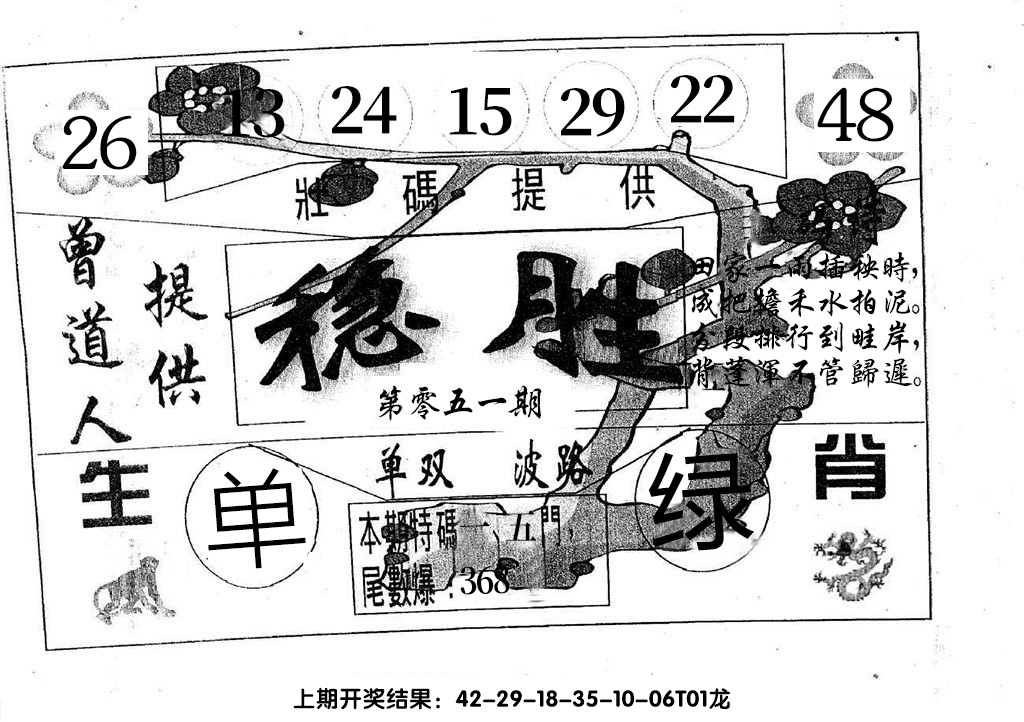 26
13 24 15 29 22
48
壯碼提供
曾道人
提供
稳胜
第零五一期
特
田家一雨插秧時，
成把擔禾水拍泥。
合段排行到畦岸，
背蓬渾不管歸遲。
生肖
单双 波路
单
绿
本期特碼一、五門，
尾數爆：368
上期开奖结果：42-29-18-35-10-06T01龙